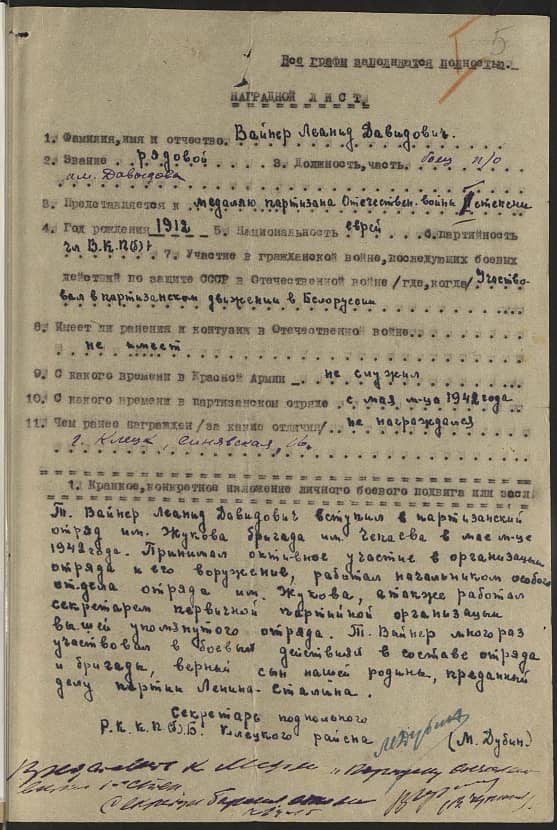 5
Все графы заполняются полностью.
НАГРАДНОЙ ЛИСТ
1. Фамилия, имя и отчество. Вайнер Леанид Давидович.
2. Звание . . рядовой . . . . 3. Должность, часть. боец п/о
им. Давыдова
3. Представляется к медалю партизана Отечествен. войны I степени
4. Год рождения 1912 5. Национальность еврей 6. партийность
чл В.К.П(б) 7. Участие в гражданской войне, последующих боевых
действий по защите СССР в Отечественной войне /где, когда/ Участво-
вал в партизанском движении в Белоруссии
8. Имеет ли ранения и контузии в Отечественной войне.
не имеет
9. С какого времени в Красной Армии не служил
10. С какого времени в партизанском отряде с мая м-ца 1942 года
11. Чем ранее награжден /за какие отличия/ не награждался
г. Клецк, Синявская,
1. Краткое, конкретное изложение личного боевого подвига или засл
Т. Вайнер Леанид Давидович вступил в партизанский
отряд им. Жукова бригада им Чепаева в мае м-це
1942 года. Принимал активное участие в организацыи
отряда и его воружение, работал начальником особого
отдела отряда им. Жукова, а также работал
секретарем первичной партийной организацыи
вышей упомянутого отряда. Т. Вайнер много раз
участвовал в боевых действиях в составе отряда
и бригады, верный сын нашей родины, преданный
делу партии Ленина-Сталина.
Секретарь подпольного
Р.К.К.П(б)Б. Клецкого района (М. Дубин)
к медали "Партизану